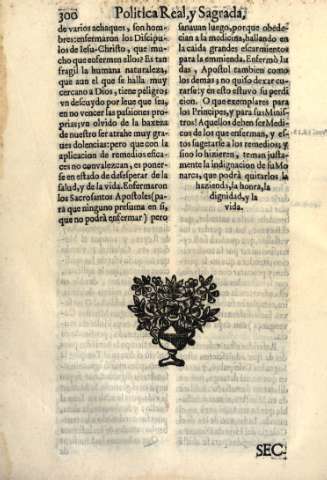 300 Politica Real, y Sagrada,
de varios achaques, son hom-
bres: enfermaron los Discipu-
los de Iesu-Christo, que mu-
cho que enfermen ellos? Es tan
fragil la humana naturaleza,
que aun el que se halla muy
cercano a Dios, tiene peligro;
vn descuydo por leue que sea,
en no vencer las passiones pro-
prias; vn olvido de la baxeza
de nuestro ser atrahe muy gra-
ues dolencias: pero que con la
aplicacion de remedios efica-
ces no convalezcan, es poner-
se en estado de desesperar de la
salud, y de la vida. Enfermaron
los Sacrosantos Apostoles (pa-
ra que ninguno presuma en sì,
que no podrà enfermar) pero
sanauan luego, porque obede-
cian a la medicina, hallando en
la caida grandes escarmientos
para la emmienda. Enfermò Iu
das, Apostol tambien como
los demàs no quiso dexar cu-
rarse: y en esto estuvo su perdi
cion. O que exemplares para
los Principes, y para sus Minis-
tros! Aquellos deben ser Medi-
cos de los que enferman, y es-
tos sugetarse a los remedios; y
sino lo hizieren, teman justa-
mente la indignacion de su Mo
narca, que podrà quitarlos la
hazienda, la honra, la
dignidad, y la
vida.
SEC-